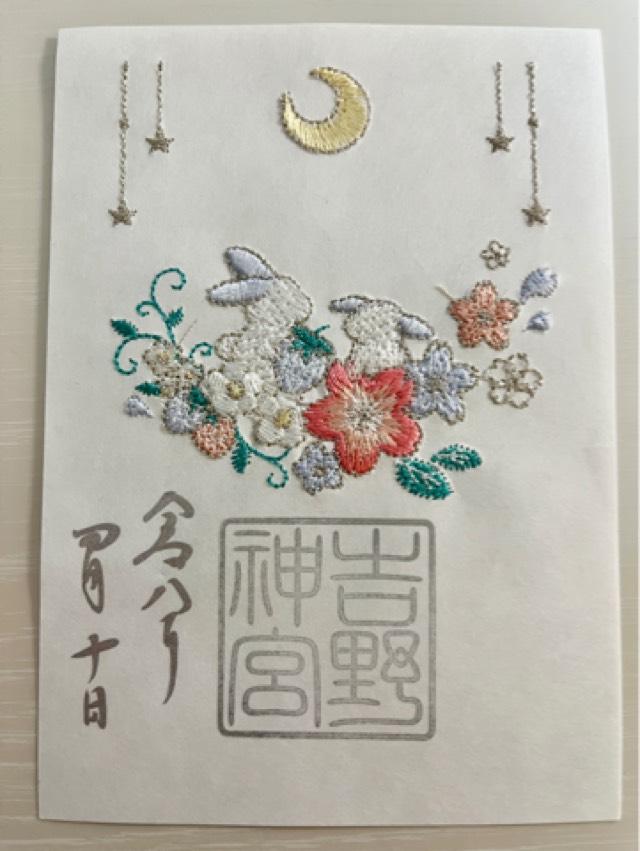 吉野
神宮
令和八年
四月十日